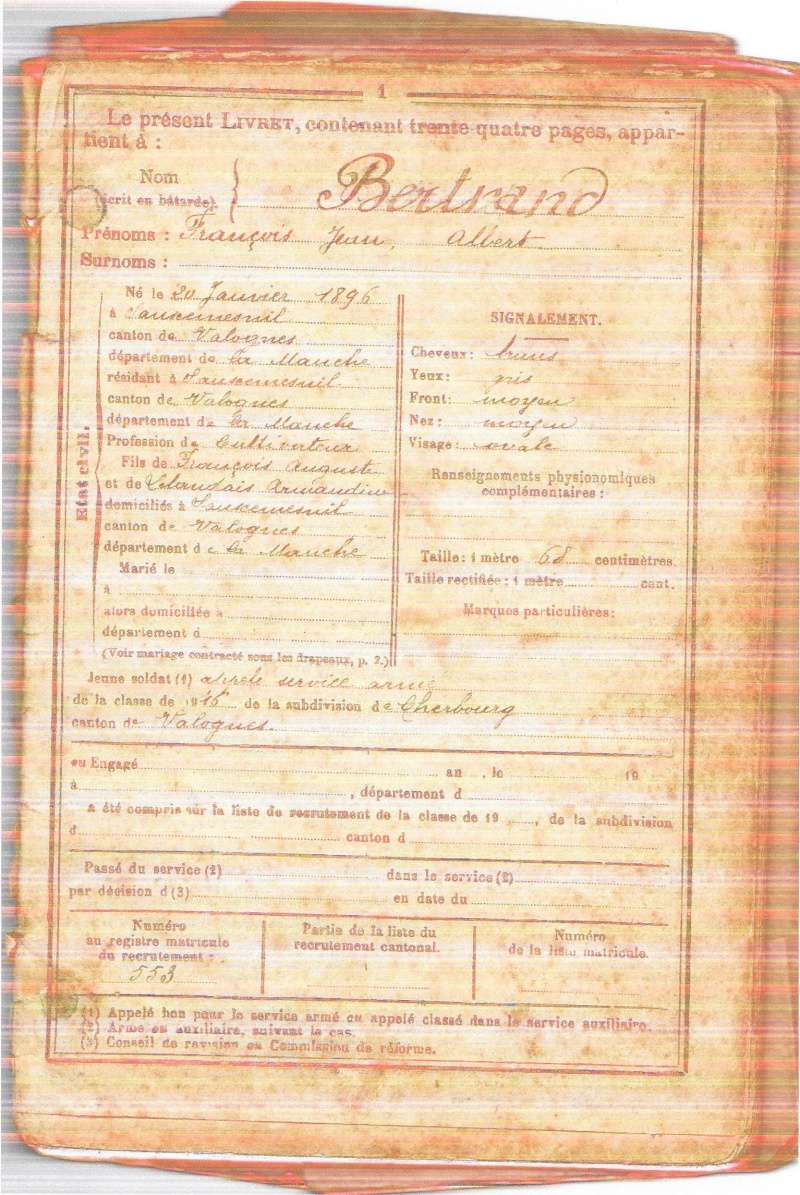 1
Le présent LIVRET, contenant trente-quatre pages, appar-
tient à :
Nom
(écrit en bâtarde).
Bertrand
Prénoms : François Jean, Albert
Surnoms :
État civil.
Né le 20 Janvier 1896
à Saussemesnil
canton de Valognes
département de la Manche
résidant à Saussemesnil
canton de Valognes
département de la Manche
Profession de Cultivateur
Fils de François Auguste
et de Armandine
domiciliés à Saussemesnil
canton de Valognes
département de la Manche
Marié le
à
alors domiciliée à
département d
(Voir mariage contracté sous les drapeaux, p. 2.)
SIGNALEMENT.
Cheveux : bruns
Yeux : gris
Front : moyen
Nez : moyen
Visage : ovale
Renseignements physionomiques
complémentaires :
Taille : 1 mètre 68 centimètres.
Taille rectifiée : 1 mètre cent.
Marques particulières :
Jeune soldat (1) appelé service armé
de la classe de 1916 de la subdivision de Cherbourg
canton de Valognes.
ou Engagé an , le 19
à , département d
a été compris sur la liste de recrutement de la classe de 19 , de la subdivision
d canton d
Passé du service (2) dans le service (2)
par décision d (3) en date du
Numéro
au registre matricule
du recrutement :
553
Partie de la liste du
recrutement cantonal.
Numéro
de la liste matricule.
(1) Appelé bon pour le service armé ou appelé classé dans le service auxiliaire.
(2) Armé ou auxiliaire, suivant le cas.
(3) Conseil de revision ou Commission de réforme.